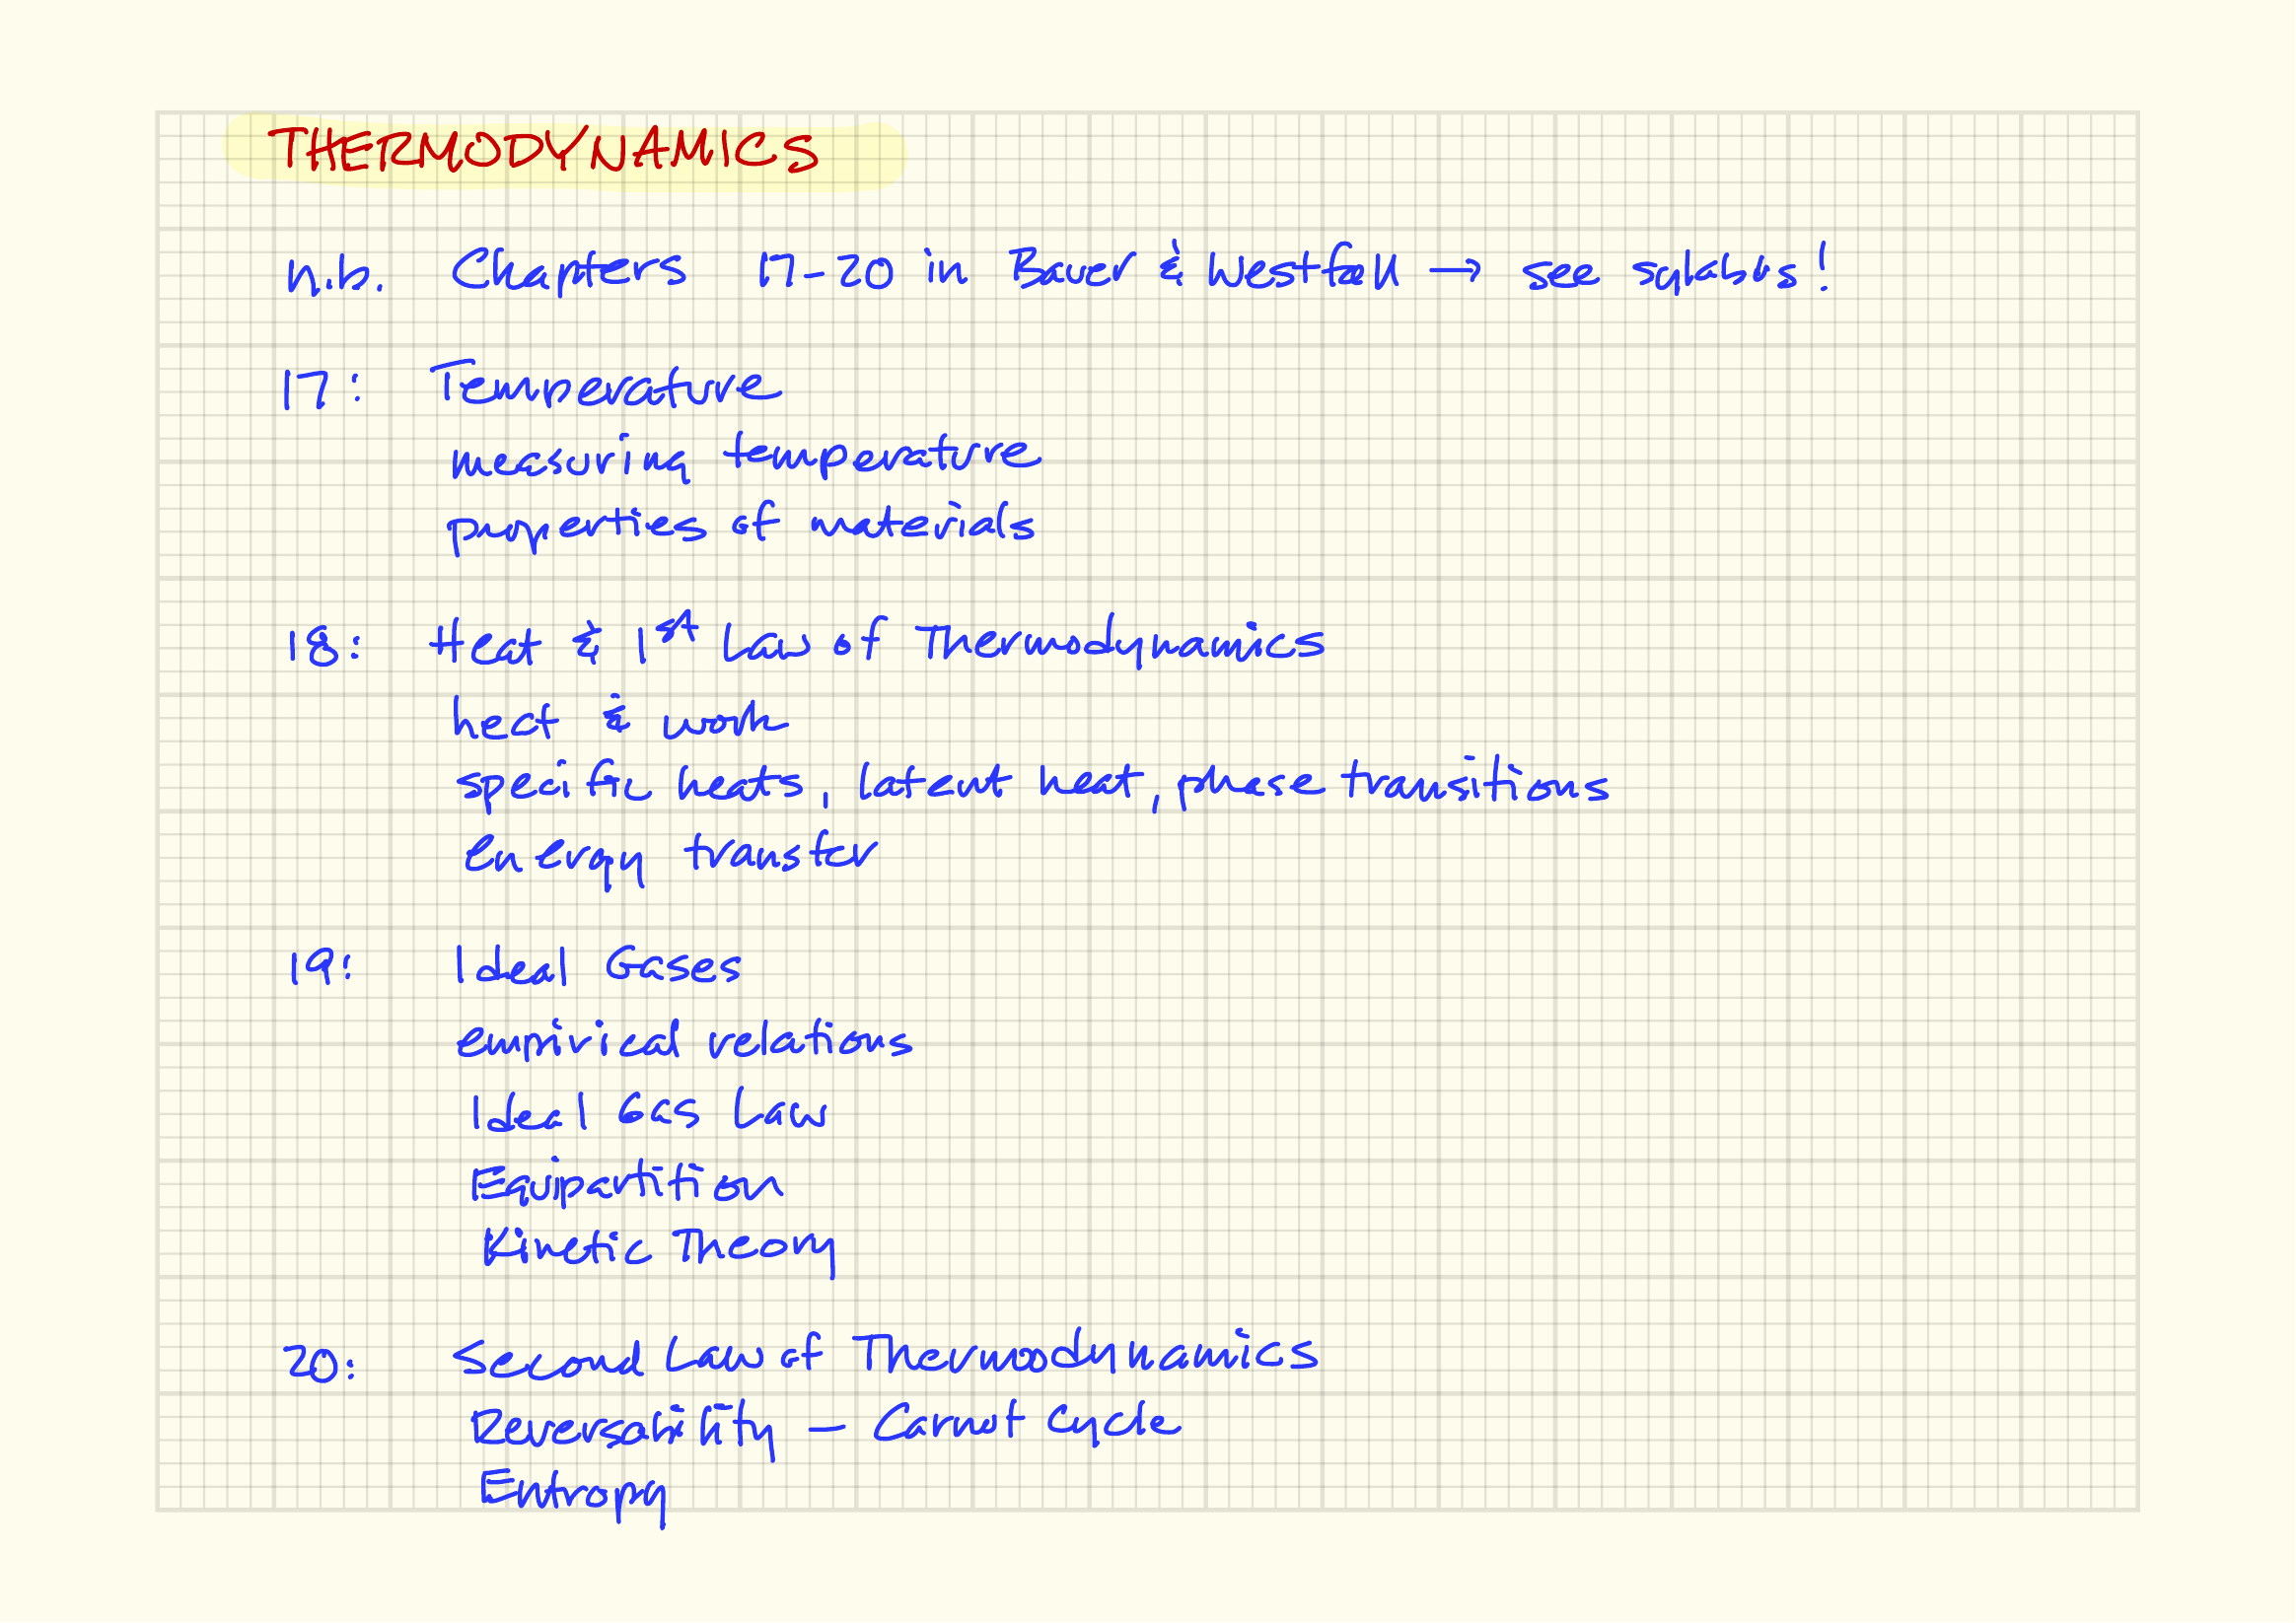 THERMODYNAMICS
n.b. Chapters 17-20 in Bauer & Westfall → see sylabus!
17: Temperature
measuring temperature
properties of materials
18: Heat & 1st Law of Thermodynamics
heat & work
specific heats, latent heat, phase transitions
energy transfer
19: Ideal Gases
empirical relations
Ideal Gas Law
Equipartition
Kinetic Theory
20: Second Law of Thermodynamics
Reversability — Carnot Cycle
Entropy